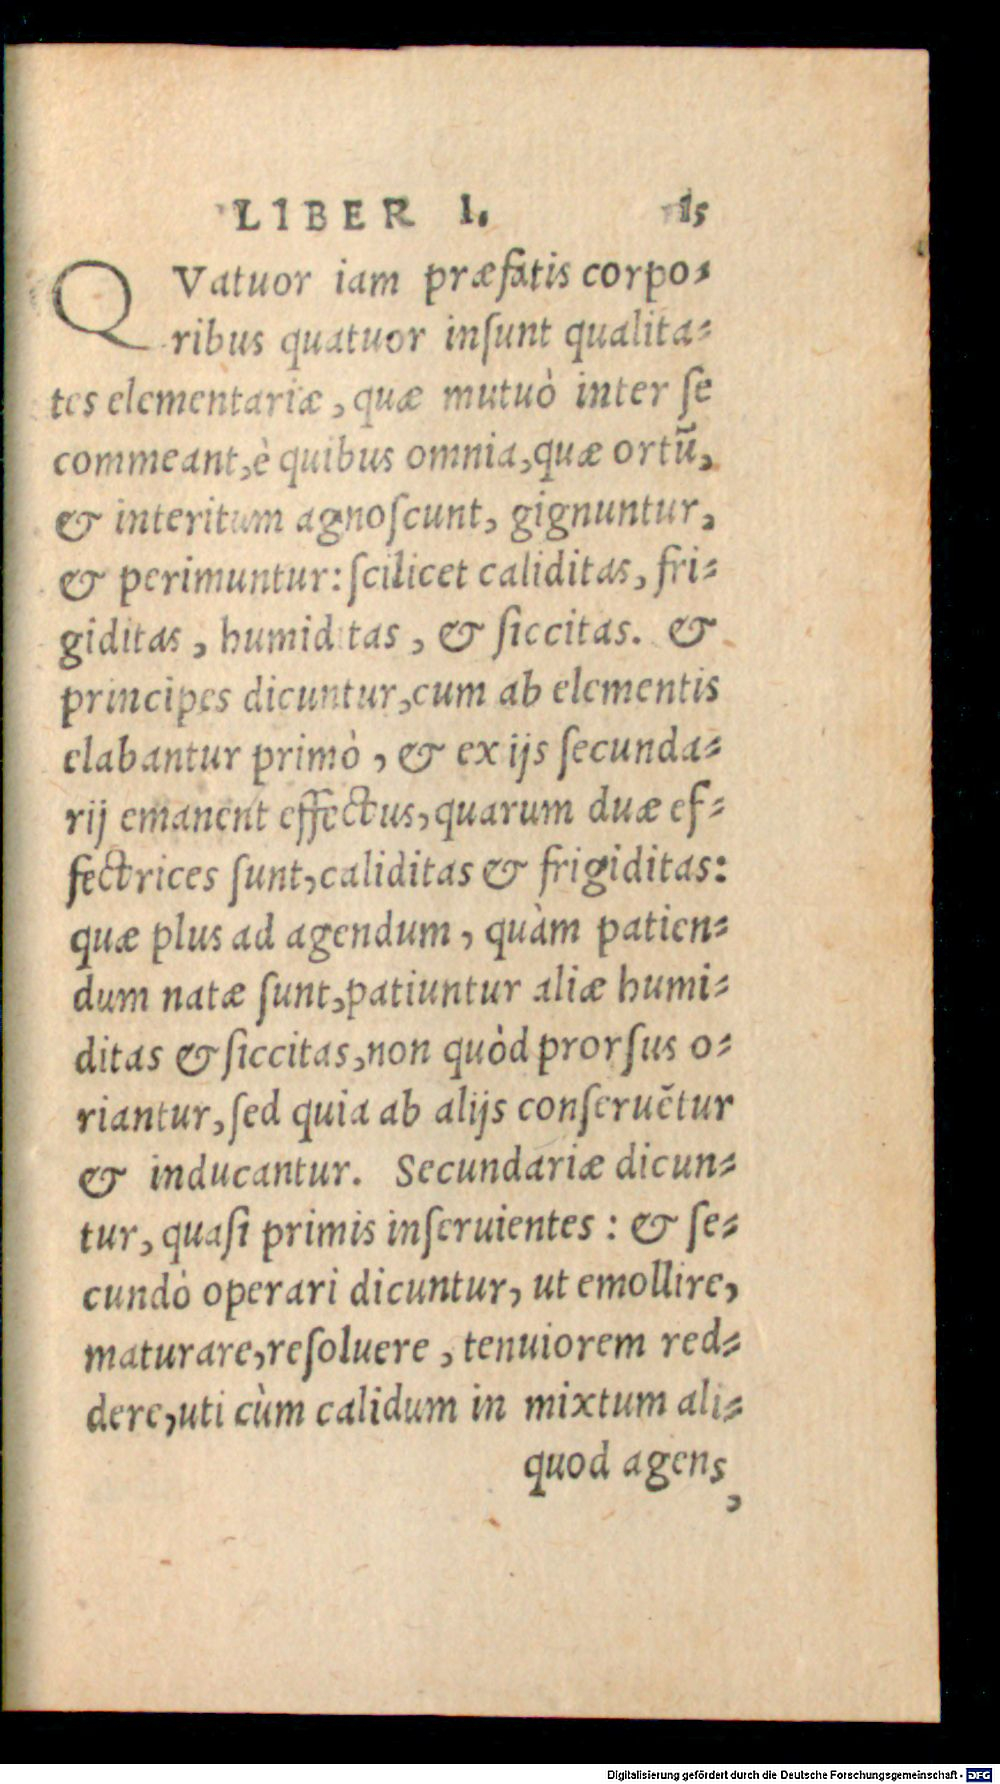 LIBER I. 15
QVatuor iam præfatis corpo-
ribus quatuor inſunt qualita-
tes elementariæ, quæ mutuò inter ſe
commeant, è quibus omnia, quæ ortũ,
& interitum agnoſcunt, gignuntur,
& perimuntur: ſcilicet caliditas, fri-
giditas, humiditas, & ſiccitas. &
principes dicuntur, cum ab elementis
elabantur primò, & ex ijs ſecunda-
rij emanent effectus, quarum duæ ef-
fectrices ſunt, caliditas & frigiditas:
quæ plus ad agendum, quàm patien-
dum natæ ſunt, patiuntur aliæ humi-
ditas & ſiccitas, non quòd prorſus o-
riantur, ſed quia ab alijs conſeruẽtur
& inducantur. Secundariæ dicun-
tur, quaſi primis inſeruientes: & ſe-
cundò operari dicuntur, ut emollire,
maturare, reſoluere, tenuiorem red-
dere, uti cùm calidum in mixtum ali-
quod agens,
Digitalisierung gefördert durch die Deutsche Forschungsgemeinschaft - DFG